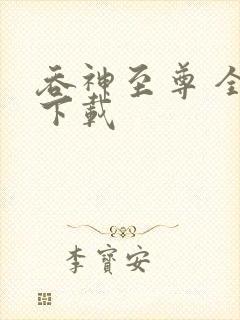 吞神至尊全
下载
李寶安